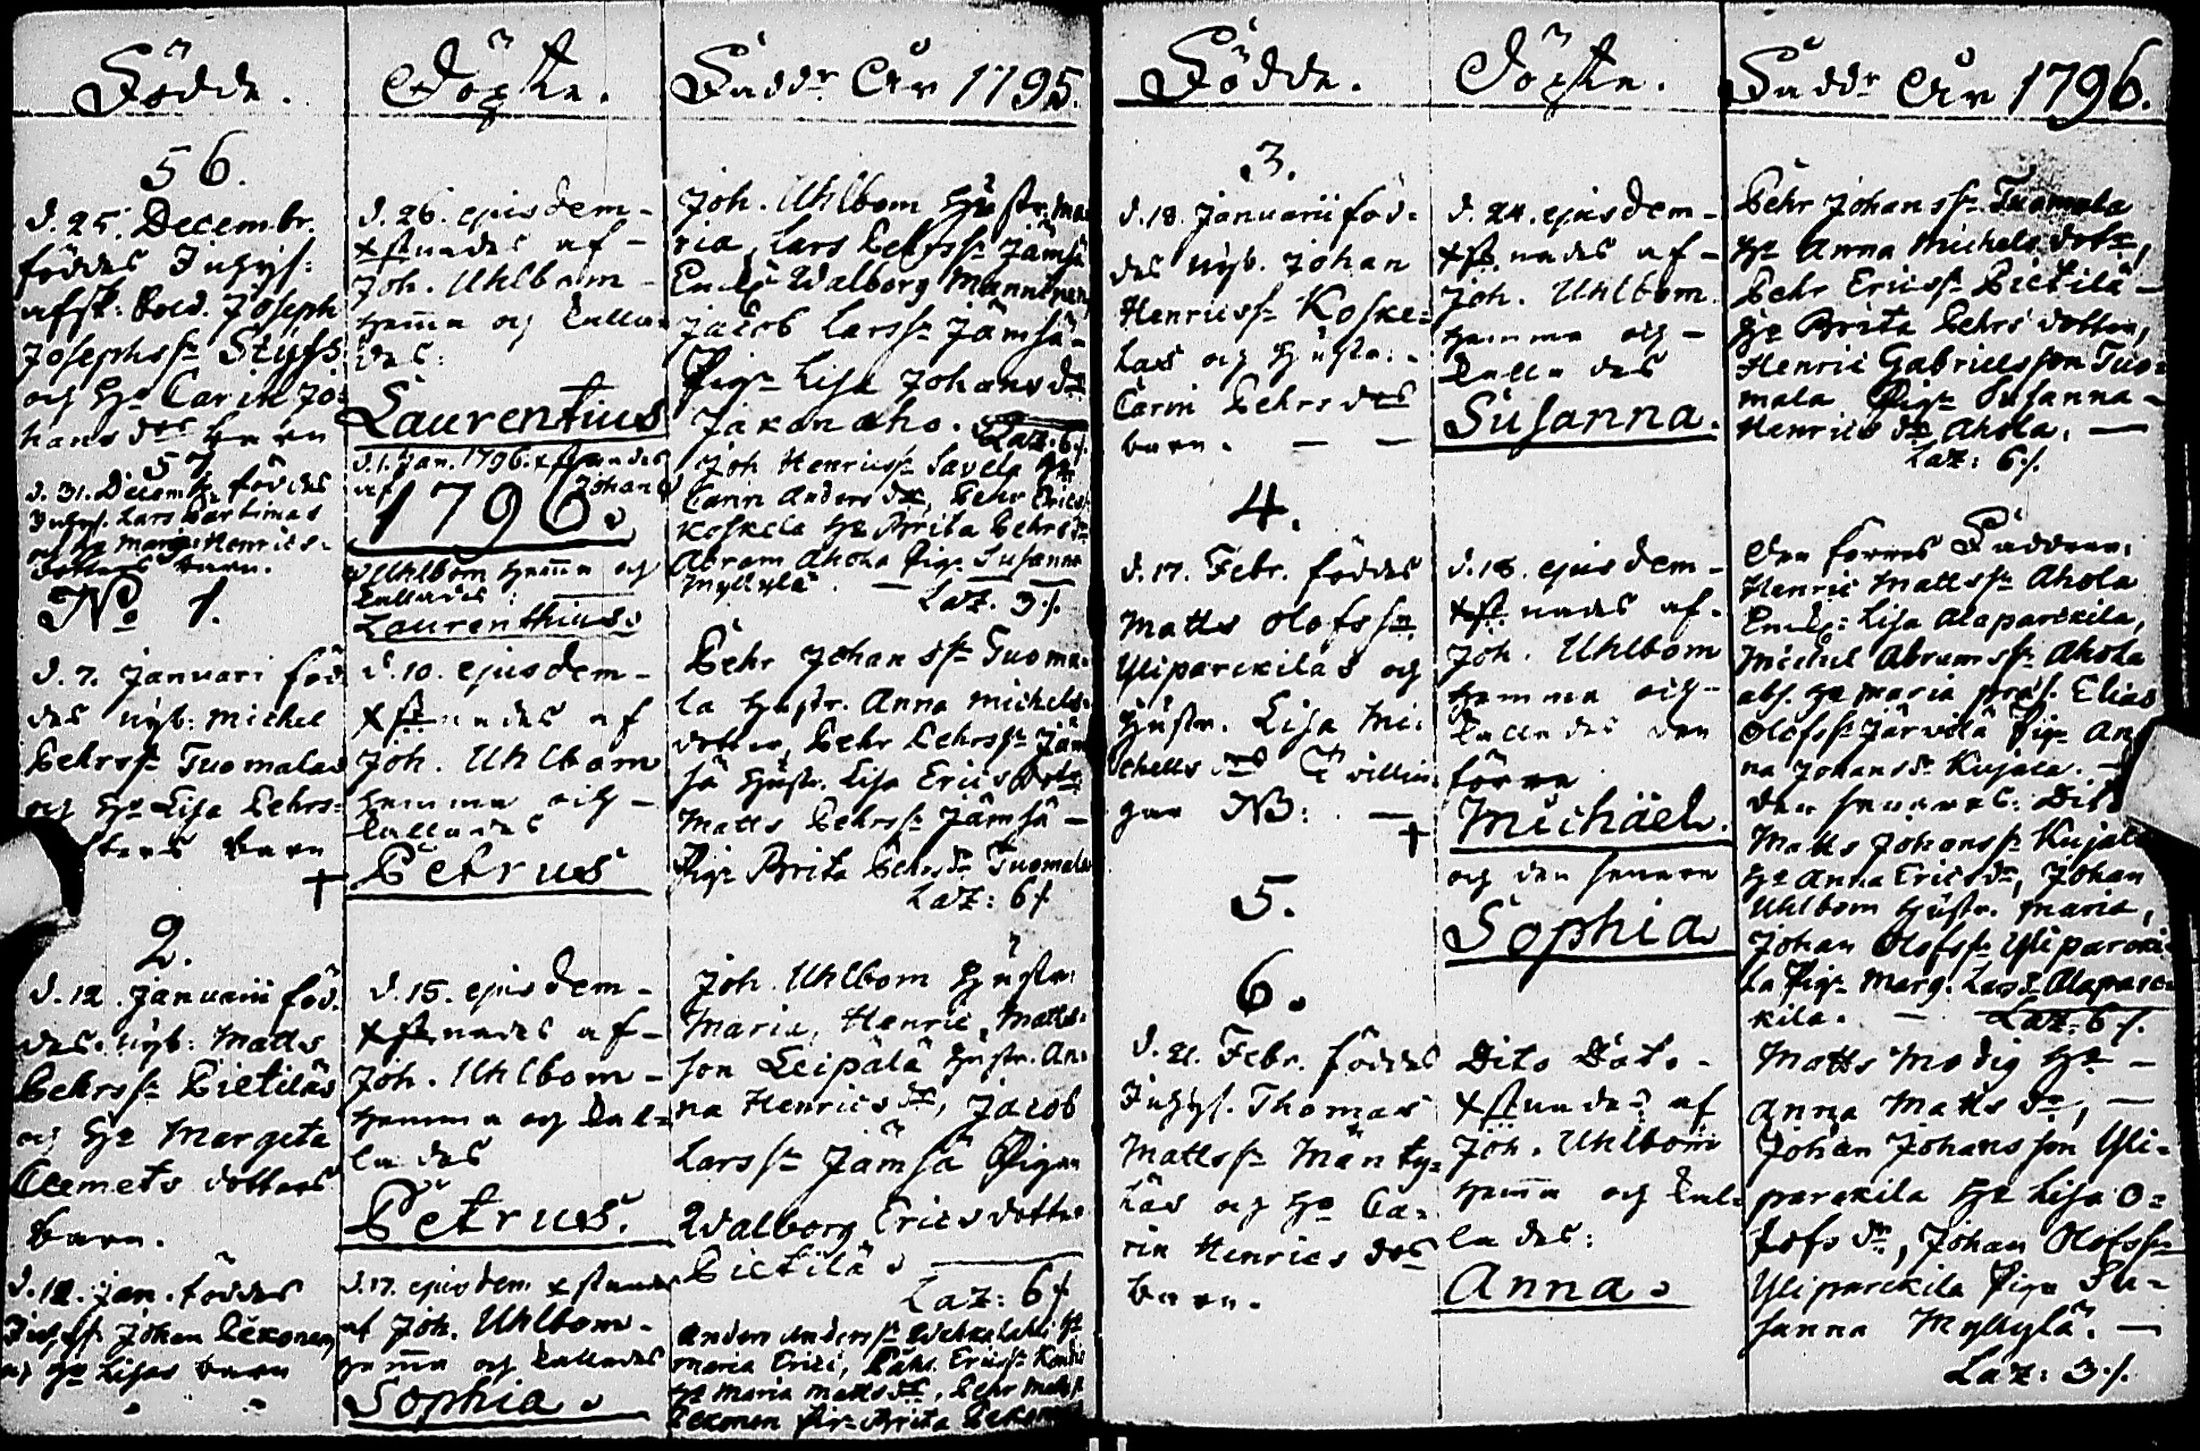 Födde.
56.
d. 25. Decembr.
föddes Inhys:
afsk: Sold. Joseph
Josephss:n Styfs
och H:o Carin Jo:
hans d:rs barn
57
d. 31. Decemb: föddes
Inhys. Lars Partimas
och H:o Marg: Henrics-
dotters barn.
N:o 1.
d. 7. Januari föd
des nyb: Michel
Pehrss:n Tuomalas
och H:o Lisa Pehrs-
dotters barn
†
2.
d. 12. Januarii föd.
des. nyb: Matts
Pehrss:n Pietiläs
och H:o Margeta
Clemets dotters
barn.
d. 12. Jan. föddes
Johan Pekonen
H:o Lisas barn
Döpte.
d. 26. ejusdem -
xstnades af -
Joh. Uhlbom -
hemma och kalla-
des:
Laurentius
d. 1. Jan. 1796. xstnades
af Johan
1796.
Uhlbom hemma och
kallades:
Laurenthius.
d. 10. ejusdem -
xstnades af
Joh. Uhlbom
hemma och -
kallades
Petrus
d. 15. ejusdem -
xstnades af -
Joh. Uhlbom -
hemma och kal-
lades
Petrus.
d. 17. ejusdem xstnades
af Joh. Uhlbom.
hemma och kallades
Sophia.
Faddr År 1795.
Joh. Uhlbom Hustr. Ma
ria, Lars Pehrss:n Jämsä
Enk: Walborg Manninen
Jacob Larss:n Jämsä -
Pig: Lisa Johans d:r
Jakonaho. Laz: 6 f.
Joh Henricss:n Savela H:o
Carin Anders d:r, Pehr Erics
Koskela H:o Brita Pehrs d:r
Abram Ahola Pig: Susanna
Myllylä. - Laz. 3 f.
Pehr Johans s:n Tuoma-
la Hustr. Anna Michels-
dotter, Pehr Pehrss:n Jäm
sä Hustr. Lisa Erics Dotr
Matts Pehrss:n Jämsä -
Pig: Brita Pehrs d:r Tuomala
Laz: 6 f
Joh. Uhlbom Hustr:
Maria, Henric, Matts-
son Leipälä Hustr. An-
na Henrics d:r, Jacob
Larss:n Jämsä Pigan
Walborg Erics dotter
Pietilä.
Laz: 6 f
Anders Anderss:n H:o
Maria Erici, Ericss:n
H:o Maria Matts d:r, Pehr Matss:n
Pekonen Pig: Brita Pekonen
Födde.
3.
d. 18. Januarii föd-
des nyb. Johan
Henricss:n Koske-
las och Hustr: -
Carin Pehrs d:rs
barn. - -
4.
d. 17. Febr. föddes
Matts Olofss:n
Yliparckilas och
Hustr. Lisa Mi-
chells d:rs Twillin-
gar NB: -
†
5.
6.
d. 21. Febr. föddes
Inhys. Thomas
Mattss:n Mänty-
läs och H:o Ca-
rin Henrics d:rs
barn.
Döpte.
d. 24. ejusdem -
xstnades af -
Joh. Uhlbom.
hemma och -
kalla des
Susanna.
d. 18. ejusdem -
xstnades af -
Joh. Uhlbom
hemma och -
kallades den
förra
Michäel.
och den senare
Sophia
Dito Dato -
xstnades af
Joh. Uhlbom
hemma och kal-
lades:
Anna.
Faddr År 1796.
Pehr Johanss:n Tuomala
H:o Anna Michels dotr,
Pehr Ericss:n Pietilä -
H:o Brita Pehrs dotter,
Henric Gabrielsson Tuo-
mala Pig: Susanna -
Henrics d:r Ahola. -
Laz: 6 f.
Den förres Faddrar:
Henric Mattss:n Ahola
Enk: Lisa Alaparckila,
Michel Abramss:n Ahola
abs. H:o Maria præs. Elias
Olofss:n Järvilä Pig: An
na Johans d:r Kujala. -
Den senares: Dito
Matts Johanss:n Kujala
H:o Anna Erics d:r, Johan
Uhlbom Hustr. Maria,
Johan Olofss:n Yliparcki-
la Pig: Marg. Lars d:r Alaparc-
kila. - Laz: 6 f.
Matts Modig H:o -
Anna Matts d:r, -
Johan Johansson Yli-
parckila H:o Lisa O-
lofs d:r, Johan Olofss:n
Yliparckila Piga Su-
sanna Myllylä. -
Laz: 3 f.